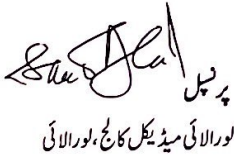 پرنسپل
لورالائی میڈیکل کالج، لورالائی